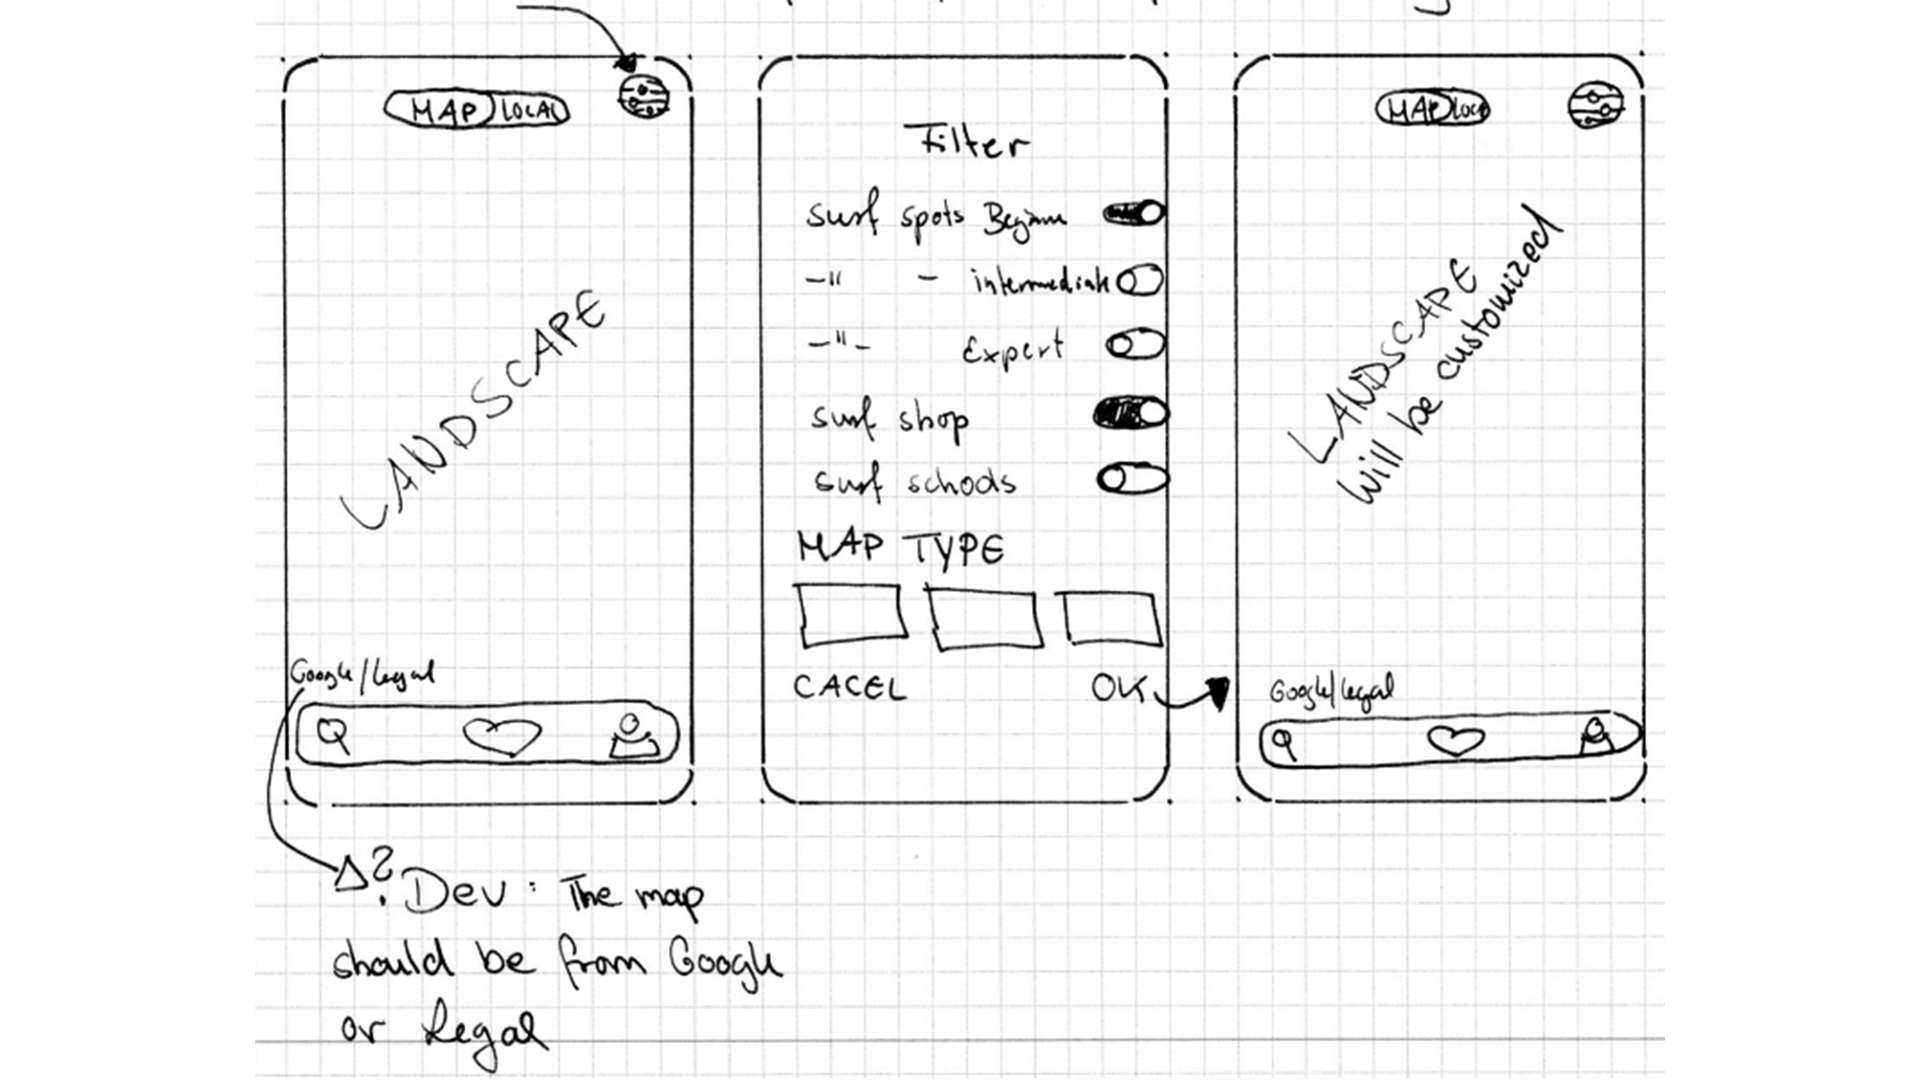 MAP LOCAL
LANDSCAPE
Google/Legal
Filter
surf spots
-"- intermediate
-"- Expert
surf shop
surf schools
MAP TYPE
CACEL OK
MAP
LANDSCAPE
will be customized
Google/legal
? Dev: The map
should be from Google
or Legal